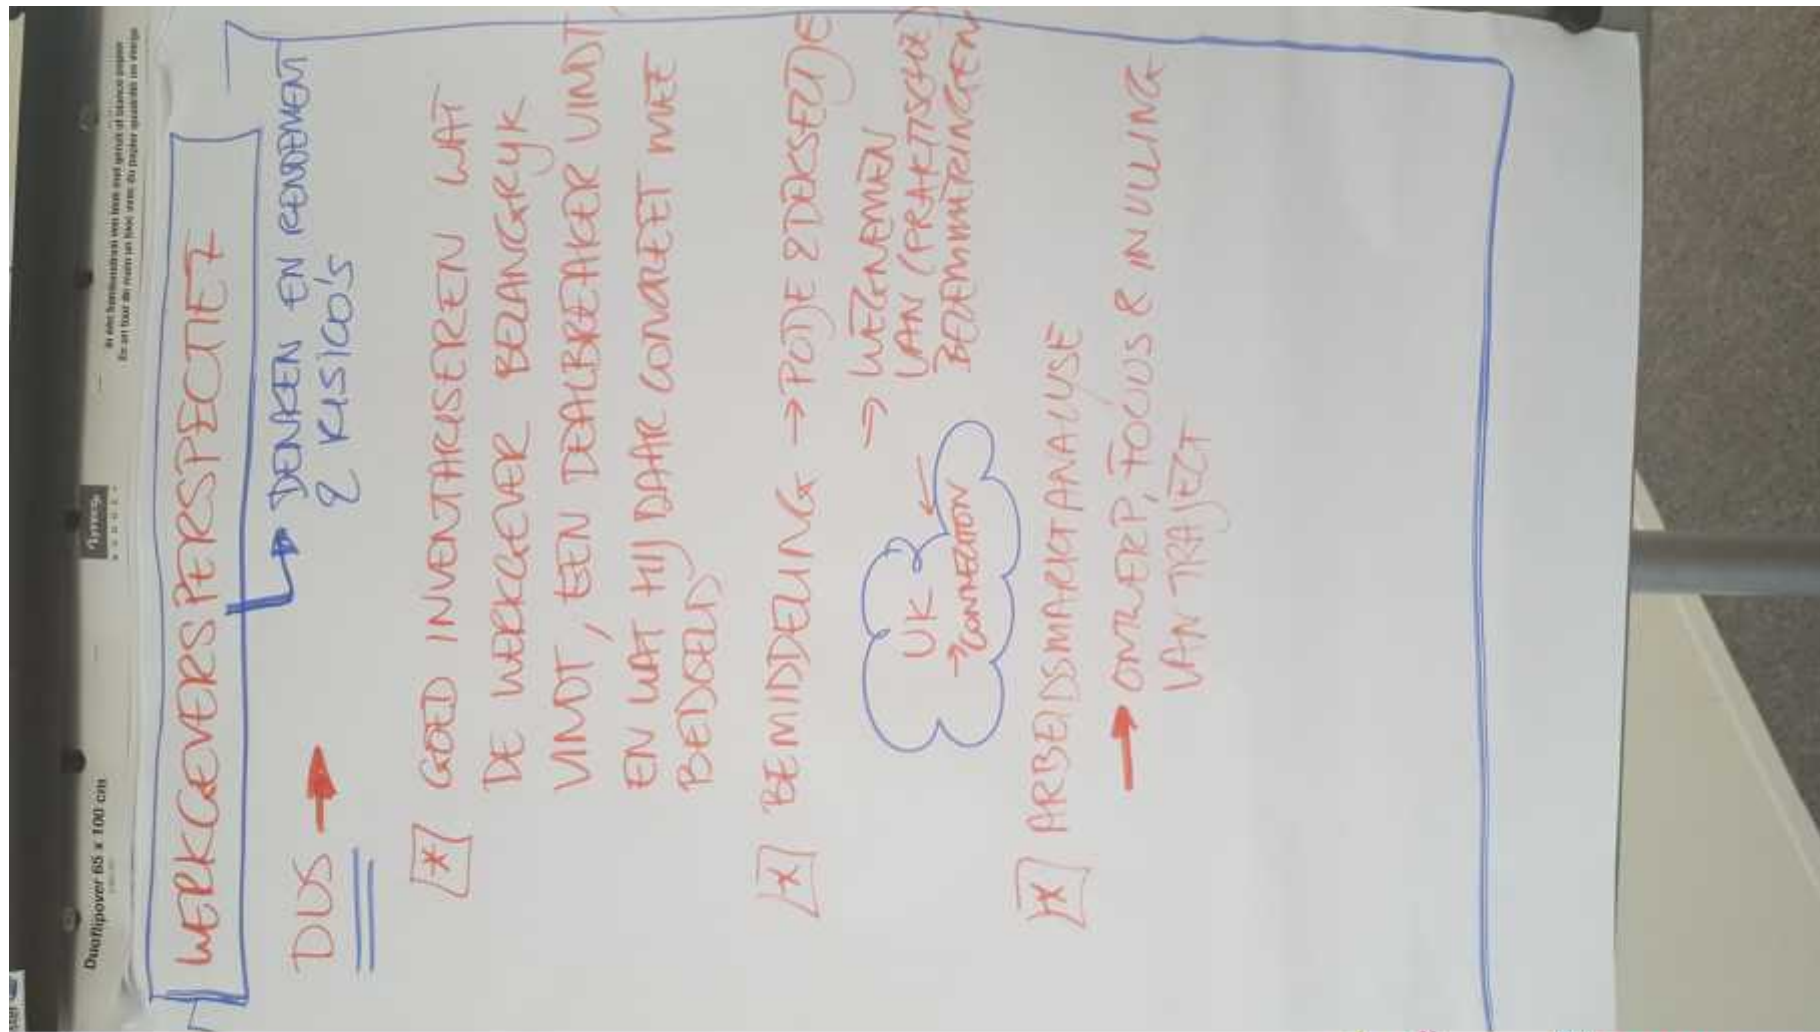 Duoflipover 65 x 100 cm
WERKGEVERSPERSPECTIEF
DENKEN EN RENDEMENT
& RISICO'S
DUS →
* GOED INVENTARISEREN WAT
DE WERKGEVER BELANGRYK
VINDT, EEN DEALBREAKER VINDT,
EN WAT HIJ DAAR CONCREET MEE
BEDOELD
* BEMIDDELING → POTJE & DEKSELTJE
→ WEGNEMEN
VAN (PRAKTISCHE)
BELEMMERINGEN
UK ←
→ CONNECTION
* ARBEIDSMARKTANALYSE
→ ONTWERP, FOCUS & INVULLING
VAN TRAJECT